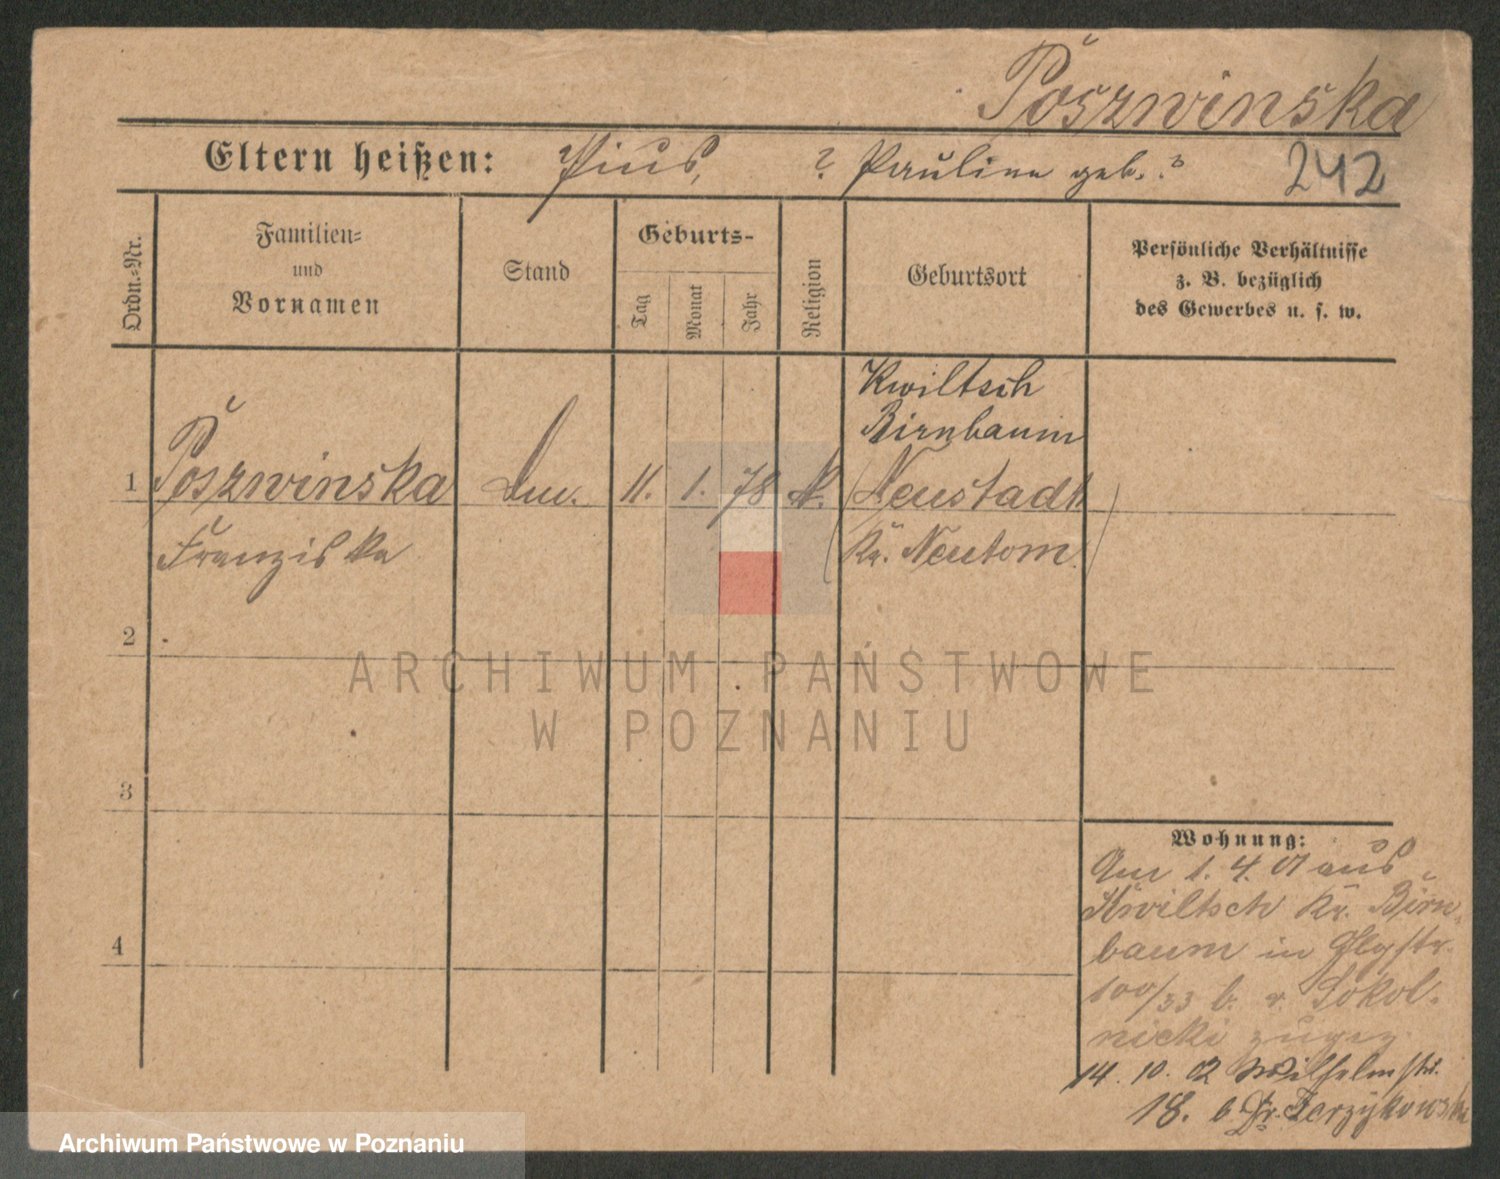 Poszwinska
Eltern heißen: Pius, ? Pauline geb. ?
242
Ordn.-Nr.
Familien-
und
Vornamen
Stand
Geburts-
Tag
Monat
Jahr
Religion
Geburtsort
Persönliche Verhältnisse
z. B. bezüglich
des Gewerbes u. s. w.
Kwiltsch
Birnbaum
1 Poszwinska 11. 1. 78 (Neustadt
Franziska Kr. Neutom.)
2
3
4
ARCHIWUM PAŃSTWOWE
W POZNANIU
Wohnung:
Am 1. 4. 01 aus
Kwiltsch Kr. Birn-
baum in
100/33 b. v. Sokol-
nicki zugez.
14. 10. 02 Wilhelmstr.
18. b. Dr. Jarzykowski
Archiwum Państwowe w Poznaniu